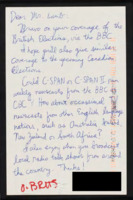 Dear Mr. Lamb:
Bravo on your coverage of the
British Elections, via the BBC.
I hope you'll also give similar
coverage to the upcoming Canadian
Elections.
Could C-SPAN or C-SPAN II run
nightly newscasts from the BBC or
CBC? How about occasional
newscasts from other English language
nations, such as Australia,
New Zealand or South Africa?
I also enjoy when you broadcast
local radio talk shows from around
the country. Thanks!